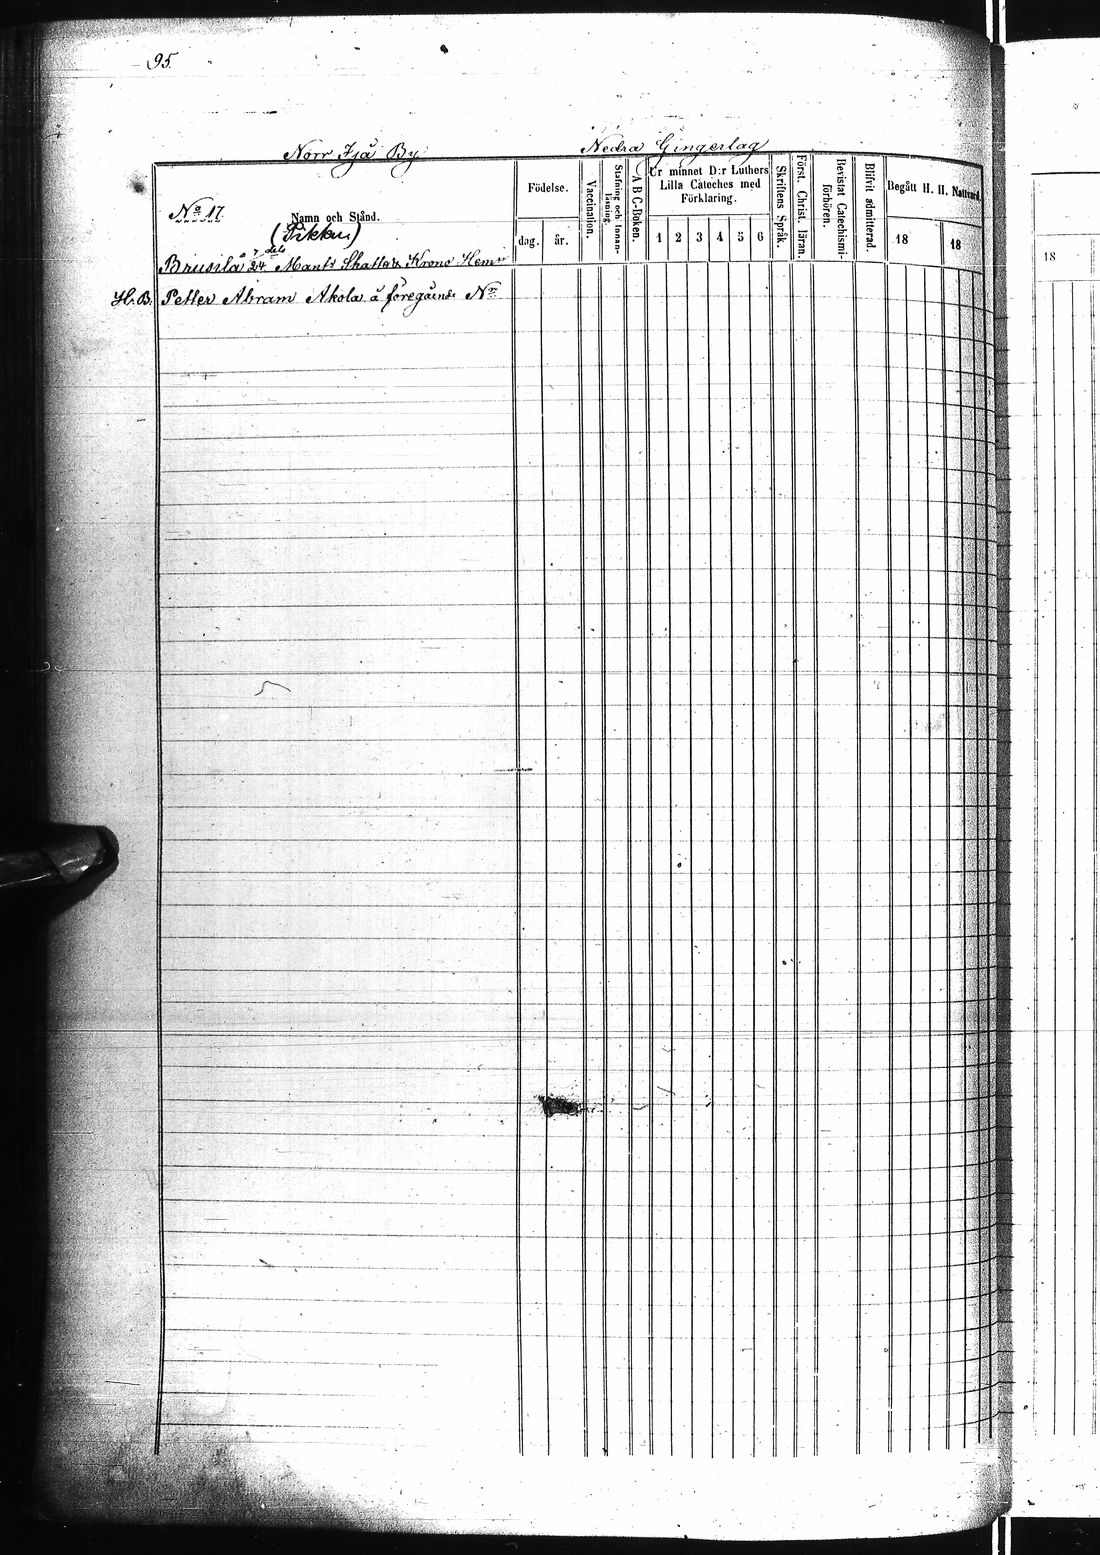 95.
Norr Ijå By Nedra Gingerlag
No 17.
Namn och Stånd.
(Pikku)
Födelse.
dag. år.
Vaccination.
Stafning och Innanläsning.
A B C-Boken.
Ur minnet D:r Luthers
Lilla Cateches med
Förklaring.
1 2 3 4 5 6
Skriftens Språk.
Först. Christ. läran.
Bevistat Catechismi-
förhören.
Blifvit admitterad.
Begått H. H. Nattvard.
18 18
Brusila å 7/24 dels Mantl Skatte Krono Hem:n
H. B. Petter Abram Akola å föregående No
18